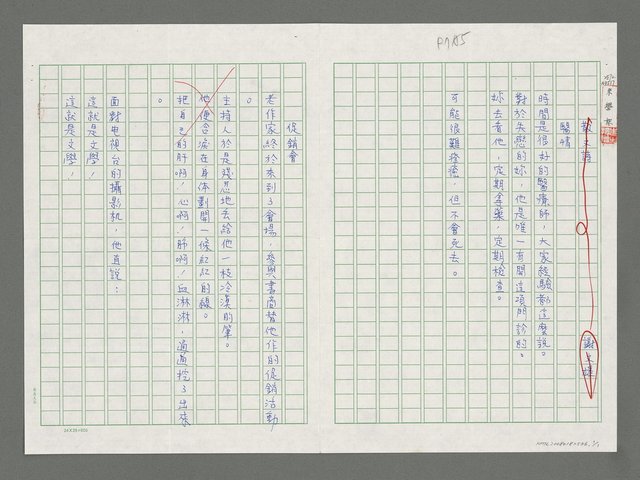 P185
散文詩
醫情
時間是很好的醫療師，大家經驗都這麼說。
對於失戀的妳，他是唯一有開這項門診的。
妳去看他，定期拿藥，定期檢查。
可能很難痊癒，但不會死去。
促銷會
老作家終於來到了會場，參與書商替他作的促銷活動
。
主持人於是殘忍地丟給他一枝冷漠的筆。
他便含淚在身体劃開一條紅紅的線。
把自己的肝啊！心啊！肺啊！血淋淋，通通挖了出來
。
面對电視台的攝影机，他直說：
這就是文學！
這就是文學！
24×25=600